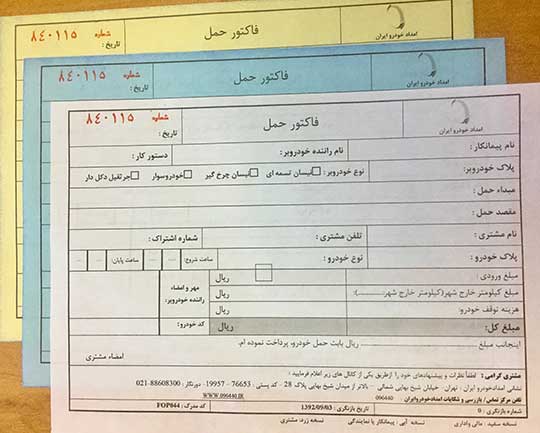 شماره ۸٤۰۱۱۵
فاکتور حمل
تاریخ :
امداد خودرو ایران
شماره ۸٤۰۱۱۵
فاکتور حمل
تاریخ :
امداد خودرو ایران
شماره ۸٤۰۱۱۵
فاکتور حمل
تاریخ:
امداد خودرو ایران
نام پیمانکار: نام راننده خودروبر: دستور کار:
پلاک خودروبر: نوع خودروبر: نیسان تسمه ای نیسان چرخ گیر خودروسوار جرثقیل دکل دار
مبداء حمل:
مقصد حمل:
نام مشتری: تلفن مشتری: شماره اشتراک:
پلاک خودرو: نوع خودرو: ساعت شروع: ساعت پایان:
مبلغ ورودی: ریال مهر و امضاء
مبلغ کیلومتر خارج شهر(کیلومتر خارج شهر:..........): ریال راننده خودروبر:
هزینه توقف خودرو: ریال
مبلغ کل: ریال کد خودرو:
اینجانب مبلغ .......... ریال بابت حمل خودرو، پرداخت نموده ام.
امضاء مشتری
مشتری گرامی: لطفاً نظرات و پیشنهادهای خود را ازطریق یکی از کانال های زیر اعلام فرمایید:
نشانی امدادخودرو ایران: تهران خیابان شیخ بهایی شمالی - بالاتر از میدان شیخ بهایی پلاک 28 - کد پستی: 76653-19957 دورنگار: 88608300-021
تلفن مرکز تماس / بازرسی و شکایات امدادخودرو ایران 096440 WWW.096440.IR
شماره بازنگری: 0 تاریخ بازنگری: 1392/09/03 کد مدرک: FOP044
نسخه سفید: مالی واداری نسخه آبی: پیمانکار یا نمایندگی نسخه زرد: مشتری